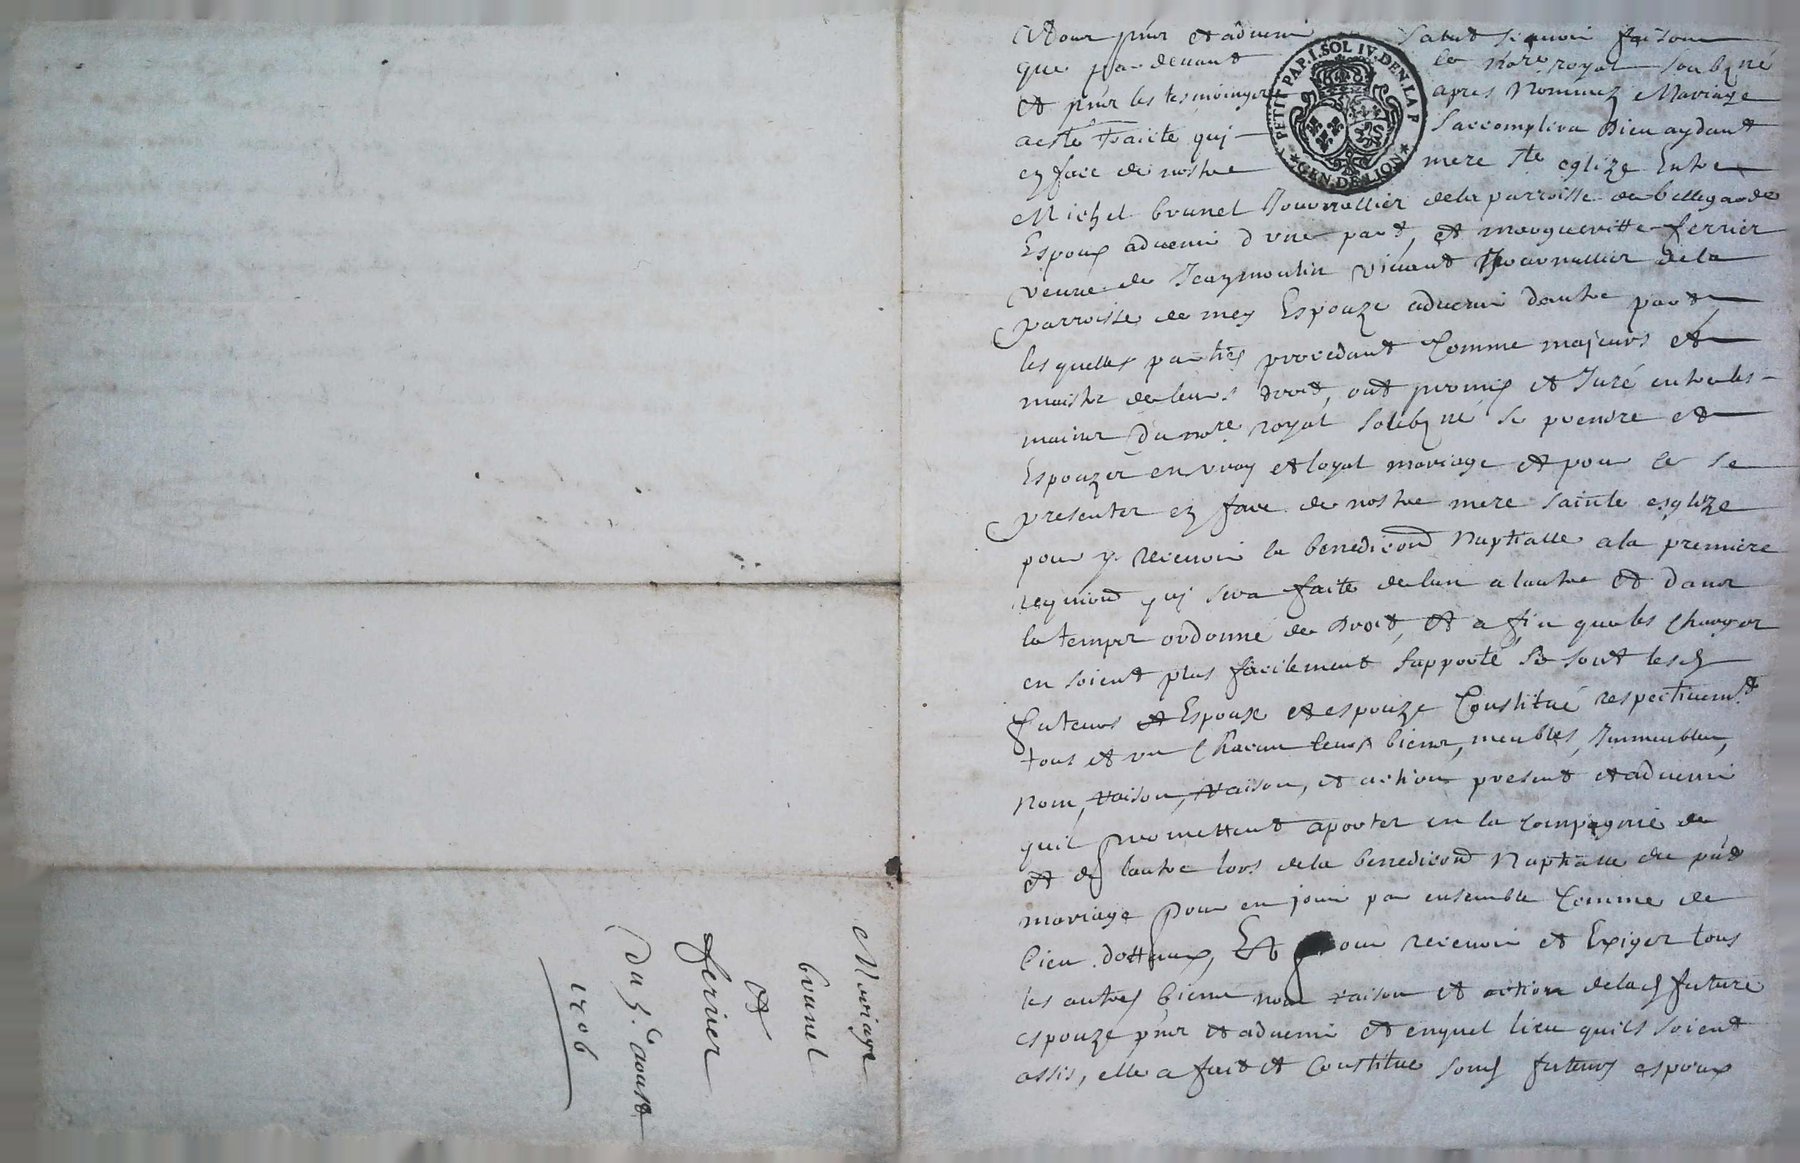 A tous pñts et advenir Salut scavoir faisons
que par devant le nore royal soubzné
et pñts les tesmoingts apres nommez Mariage
a esté traicté qui s'accomplira Dieu aydant
en face de nostre mere ste eglize Entre
Michel brunel Journallier de la parroisse de bellegarde
Espoux advenir d'une part, et margueritte ferrier
veuve de Jean moulin vivant Journallier de la
parroisse de meys Espouze advenir d'autre part
les quelles parties procedant Comme majeurs et
maistre de leurs droit, ont promis et Juré entre les
mains du nore royal soubzné se prendre et
Espouzer en vray et loyal mariage et pour ce se
presenter en face de nostre mere sainte esglize
pour y recevoir la benediction Nuptialle a la premiere
requiond qui sera faite de l'un a l'autre et dans
le temps ordonné de Droit, et a fin que les Charges
en soient plus facilement supporté se sont lesd
futeurs Espoux et espouze Constitué respectivemt
tous et un Chacun leurs biens, meubles, Immeubles,
Nom, raison, et action present et advenir
quil promettent aporter en la compagnie de
et de lautre lors de la benediction Nuptialle du pñt
mariage pour en jouir par ensemble Comme de
bien dottaux, Et pour recevoir et Exiger tous
les autres biens nom raison et action de lad future
espouze pñts et advenir et en quel lieu quils soient
assis, elle a fait et Constitue sond futeurs espoux
PETIT PAP. 1. SOL IV. DEN. LA F
GEN. DE LION
Mariage
brunel
et
ferrier
Du 5e aoust
1706